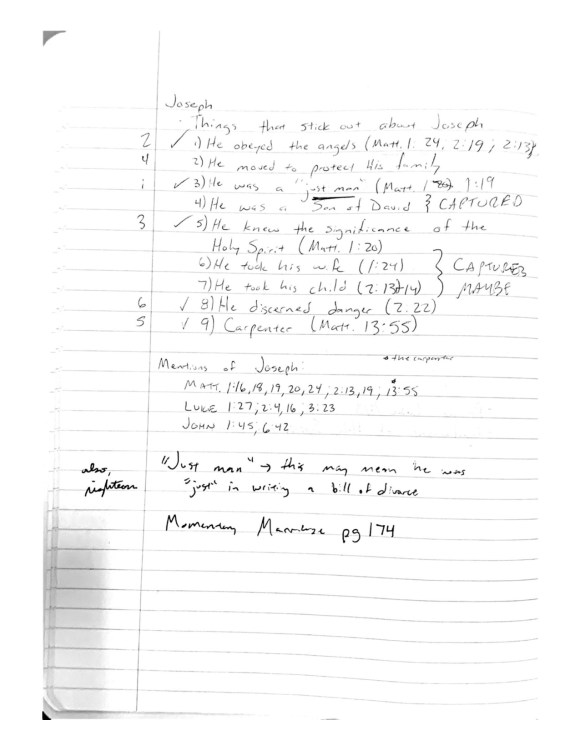 Joseph
- Things that stick out about Joseph
2 ✓ 1) He obeyed the angels (Matt. 1:24, 2:19; 2:13)
4 2) He moved to protect His family
1 ✓ 3) He was a "just man" (Matt. 1:20) 1:19
4) He was a Son of David } CAPTURED
3 ✓ 5) He knew the significance of the
Holy Spirit (Matt. 1:20)
6) He took his wife (1:24) } CAPTURED
7) He took his child (2:13+14) } MAYBE
6 ✓ 8) He discerned danger (2:22)
5 ✓ 9) Carpenter (Matt. 13:55)
Mentions of Joseph:
* the carpenter
MATT. 1:16, 18, 19, 20, 24; 2:13, 19; 13:55
LUKE 1:27; 2:4, 16; 3:23
JOHN 1:45; 6:42
"Just man" → this may mean he was
also, righteous
"just" in writing a bill of divorce
Momentary Marriage pg 174